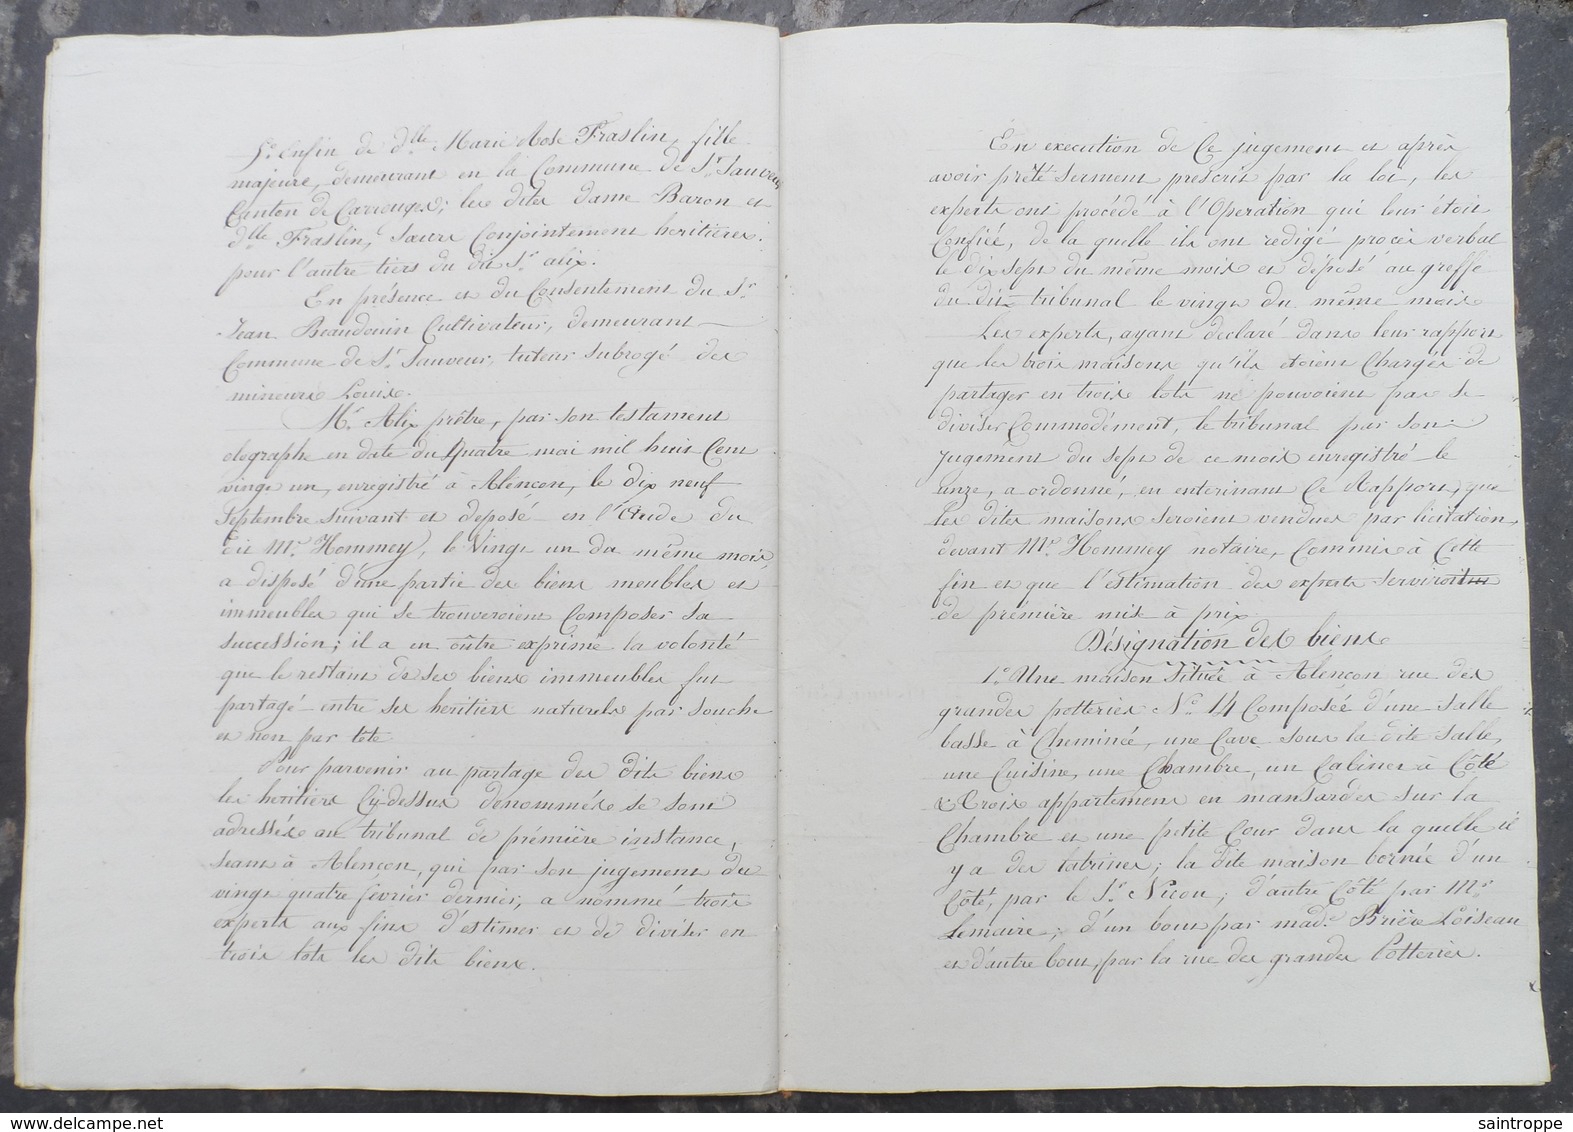 5.° Enfin de d.lle Marie Rose Fraslin, fille
majeure, demeurant en la Commune de S.t Sauveur
Canton de Carrouges; les dites dame Baron et
d.lle Fraslin, sœurs Conjointement heritières
pour l'autre tiers du dit S.r alix.
En présence et du Consentement du S.r
Jean Beaudouin Cultivateur, demeurant
Commune de S.t Sauveur, tuteur subrogé des
mineurs Louis.
M.r Alix prêtre, par son testament
olographe en date du Quatre mai mil huit Cent
vingt un, enregistré à Alençon, le dix neuf
Septembre suivant et deposé en l'étude du
dit M.e Hommey, le Vingt un du même mois,
a disposé d'une partie des biens meubles et
immeubles qui se trouveroient Composer sa
succession; il a en oûtre exprimé la volonté
que le restant de ses biens immeubles fut
partagé entre ses heritiers naturels par souche
et non par tête
Pour parvenir au partage des dits biens
les heritiers Cy-dessus denommés se sont
adressés au tribunal de prémière instance,
séant à Alençon, qui par son jugement du
vingt quatre février dernier, a nommé trois
experts aux fins d'estimer et de diviser en
trois lots les dits biens.
En execution de Ce jugement et après
avoir prêté serment prescrit par la loi, les
experts ont procédé à l'Operation qui leur étoit
Confiée, de la quelle ils ont redigé procès verbal
le dix sept du même mois et déposé au greffe
du dit tribunal le vingt du même mois
Les experts, ayant declaré dans leur rapport
que les trois maisons qu'ils étoient Chargés de
partager en trois lots ne pouvoient pas se
diviser Commodément, le tribunal par son
jugement du sept de ce mois enregistré le
onze, a ordonné, en enterinant Ce Rapport, que
les dites maisons seroient vendues par licitation,
devant M.e Hommey notaire, Commis à Cette
fin et que l'estimation des experts serviroit
de prémière mise à prix
Désignation des biens
1.° Une maison située à Alençon rue des
grandes potteries N.° 14 Composée d'une salle
basse à Cheminée, une Cave sous la dite salle,
une Cuisine, une Chambre, un Cabinet à Côté
trois appartements en mansardes sur la
Chambre et une petite Cour dans la quelle il
y a des latrines; la dite maison bornée d'un
Côté, par le S.r Nicou; d'autre Côté par M.r
Lemaire; d'un bout par mad.e Brière Loiseau
et d'autre bout, par la rue des grandes Potteries.
saintroppe